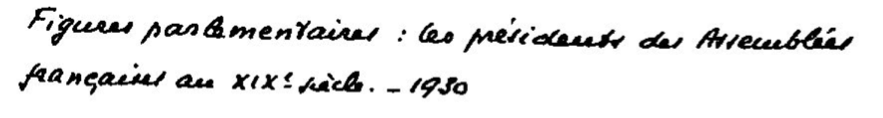 Figures parlementaires : les présidents des Assemblées
françaises au XIXe siècle. - 1930